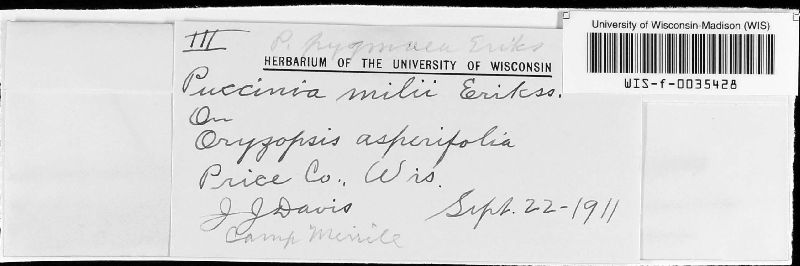 University of Wisconsin-Madison (WIS)
WIS-f-0035428
III
P. pygmaea Eriks
HERBARIUM OF THE UNIVERSITY OF WISCONSIN
Puccinia milii Erikss.
On
Oryzopsis asperifolia
Price Co., Wis.
J J Davis Sept. 22-1911
Camp Merrile